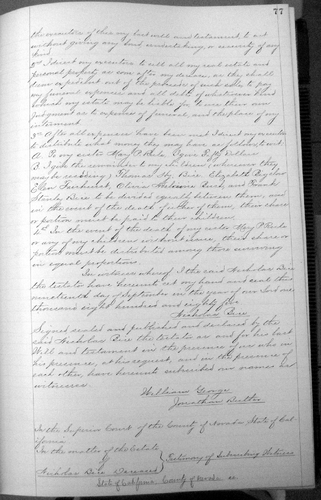 77
the executors of this my last will and testament to act
without giving any bond undertaking, or security of any
kind.
2nd I direct my executors to sell all my real estate and
personal property as soon after my demise, as they shall
deem expedient out of the proceeds of such sale, to pay
my funeral expenses, and all debts of whatsoever kind
which my estate may be liable for I leave their own
judgment as to expenses of funeral, and the place of my
interment.
3rd After all expenses have been met I direct my executors
to distribute what money they may have as follows, to wit:
A. To my sister Mary P.
B. I give the remainder to my
may be residing) Thomas Elizabeth
and Frank
Stanley to be divided equally between them, and
in the event of the death of either of them, their share
or portion must be paid to their children.
4th In the event of the death of my sister Mary P.
or any of my children without issue, their share or
portion must be distributed among those surviving
in equal proportions.
In witness whereof I the said Nicholas
the testator have hereunto set my hand and seal this
nineteenth day of September in the year of our Lord one
thousand eight hundred and eighty
Nicholas
Signed sealed and published and declared by the
said Nicholas the testator as and for his last
Will and testament in the presence of us who in
his presence, at his request, and in the presence of
each other, have hereunto subscribed our names as
witnesses.
William George
Jonathan
In the Superior Court of the County of Nevada, State of Cal
ifornia
In the matter of the Estate
of
Nicholas Deceased
Testimony of Subscribing Witness
State of California County of Nevada ss.